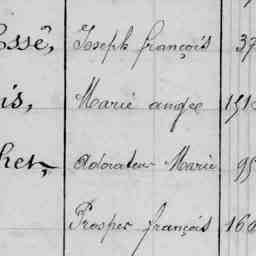 essê, Joseph françois 37
is, Marie angee 151
her, adorateur Marie 95
Prosper françois 160